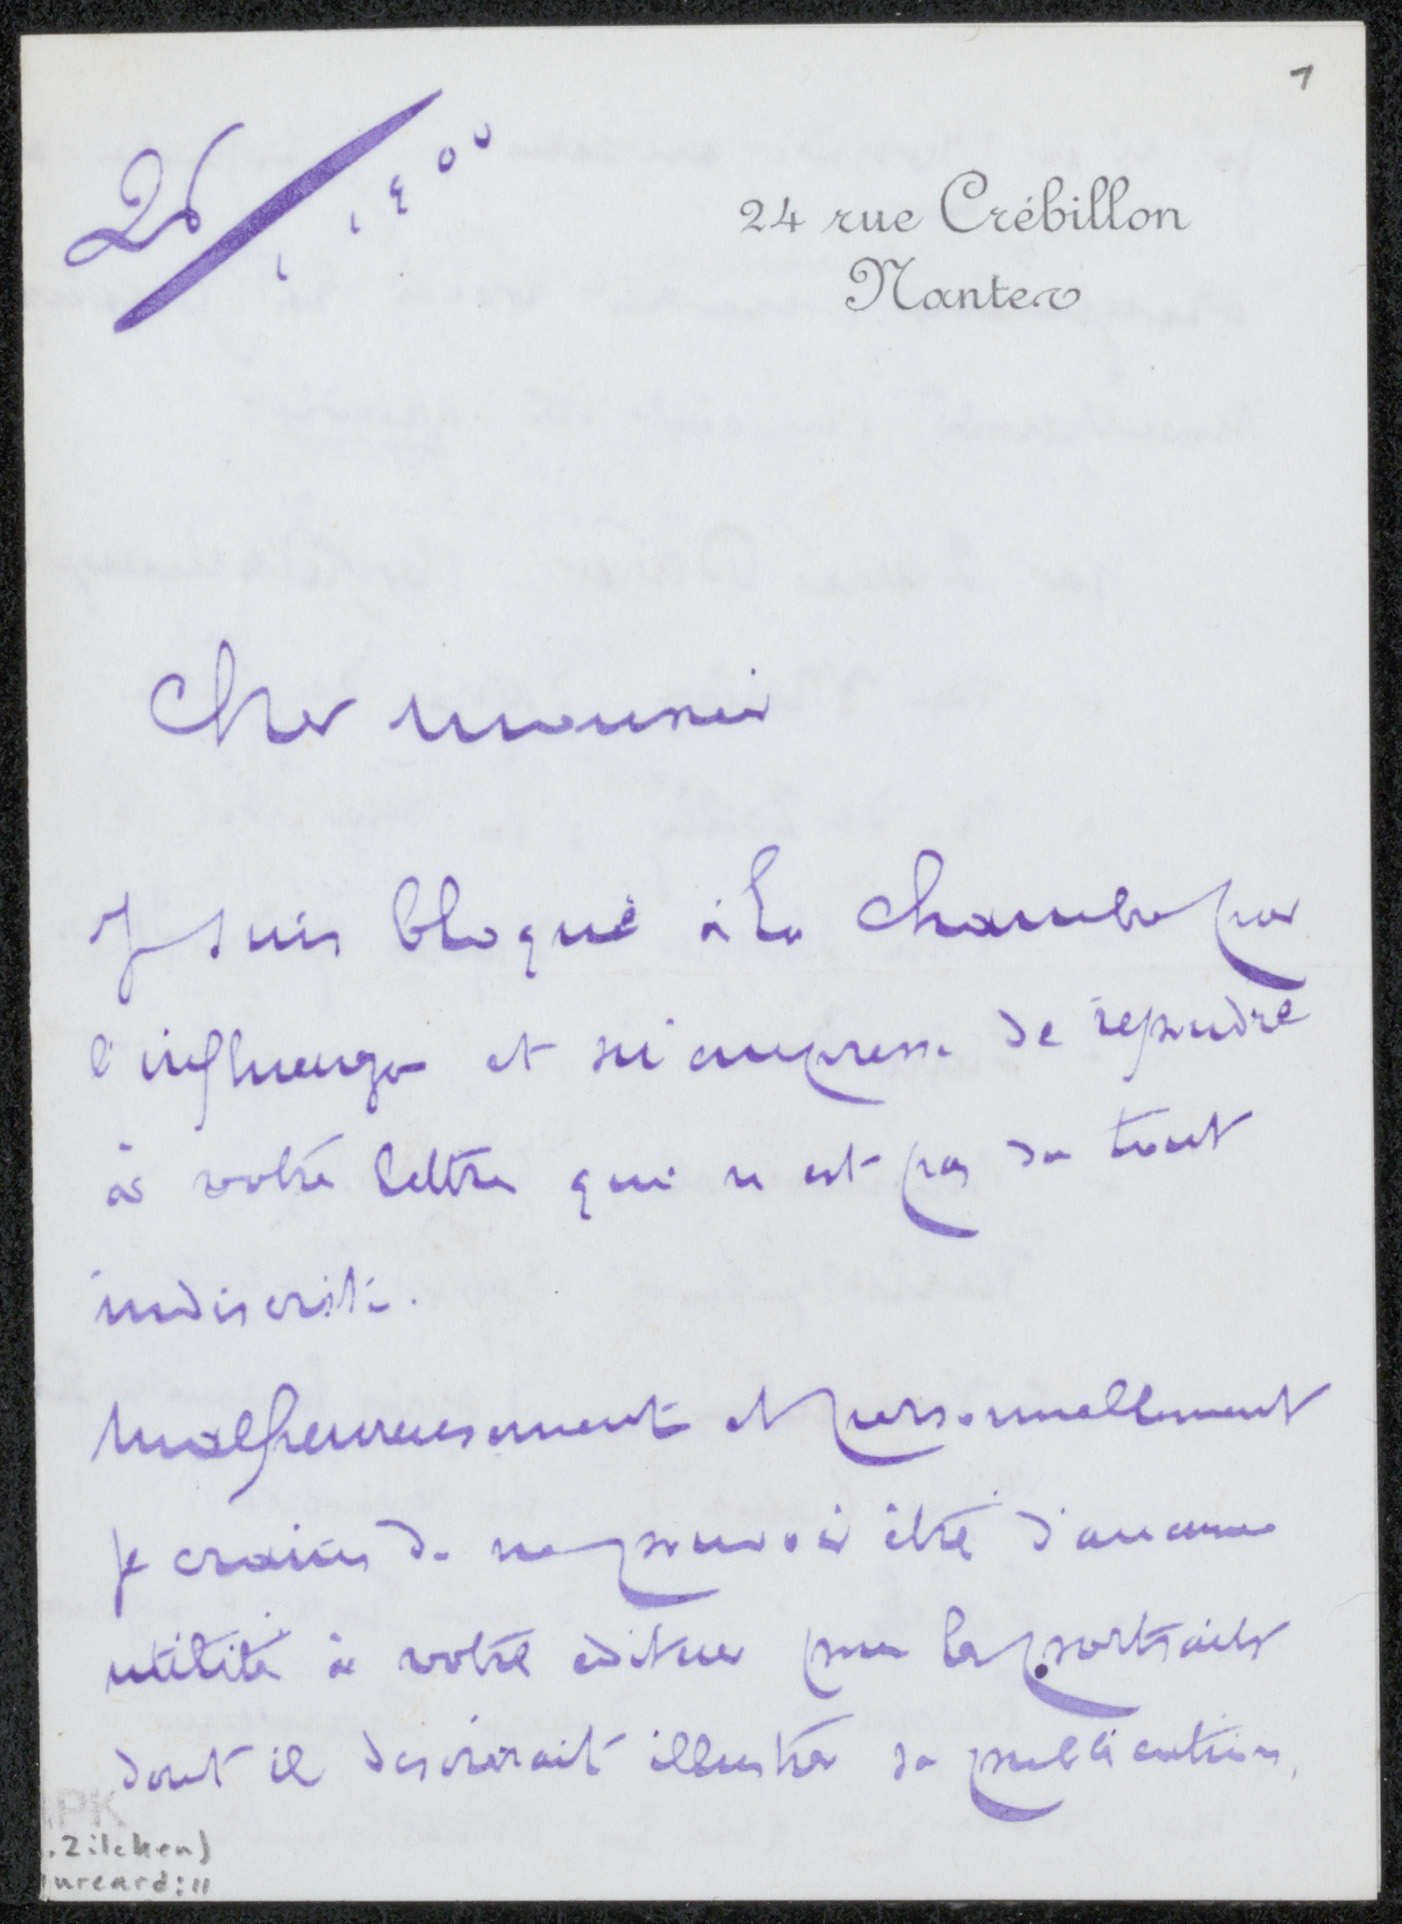 1
26/1 1900
24 rue Crébillon
Nantes
Cher monsieur
Je suis bloqué à la chambre par
l'influenza et m'empresse de repondre
à votre lettre qui n'est pas du tout
indiscrète.
Malheureusement et personnellement
je crains de ne pouvoir être d'aucune
utilité à votre editeur pour les portraits
dont il desirerait illustrer sa publication,
.PK
. Zilcken)
ureard:11